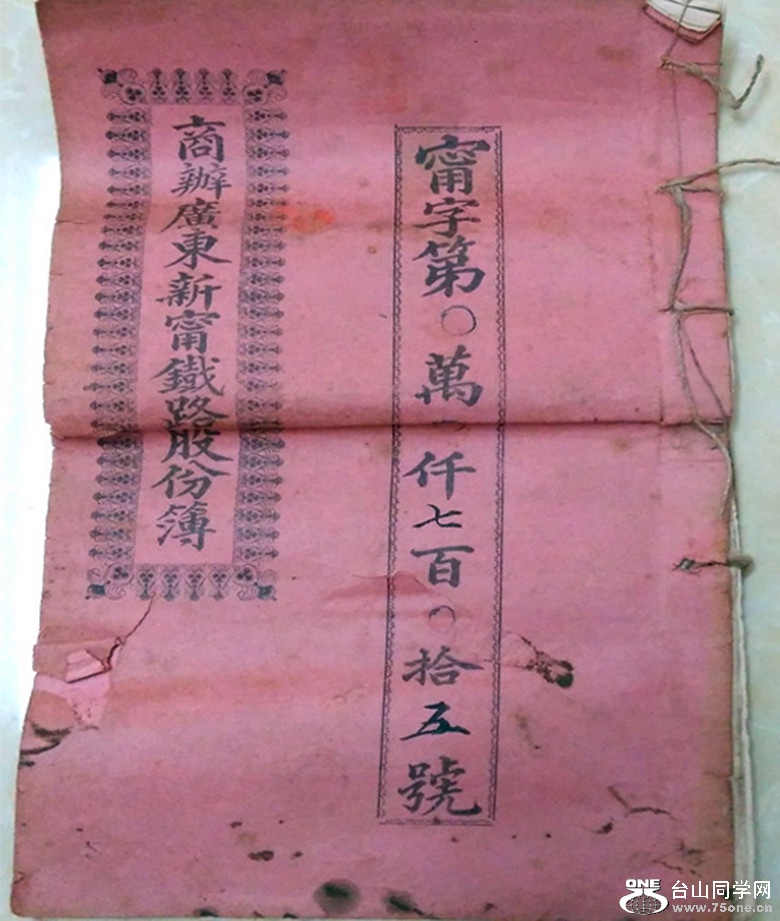 甯字第〇萬仟七百〇拾五號
商辦廣東新甯鐵路股份簿
ONE
台山同学网
www.75one.cn